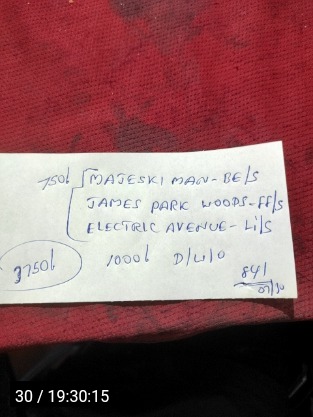 750/ MAJESKI MAN-BE/S
JAMES PARK WOODS-FF/S
ELECTRIC AVENUE-Li/S
3750/ 1000/ D/4/0
841
07/10
30 / 19:30:15